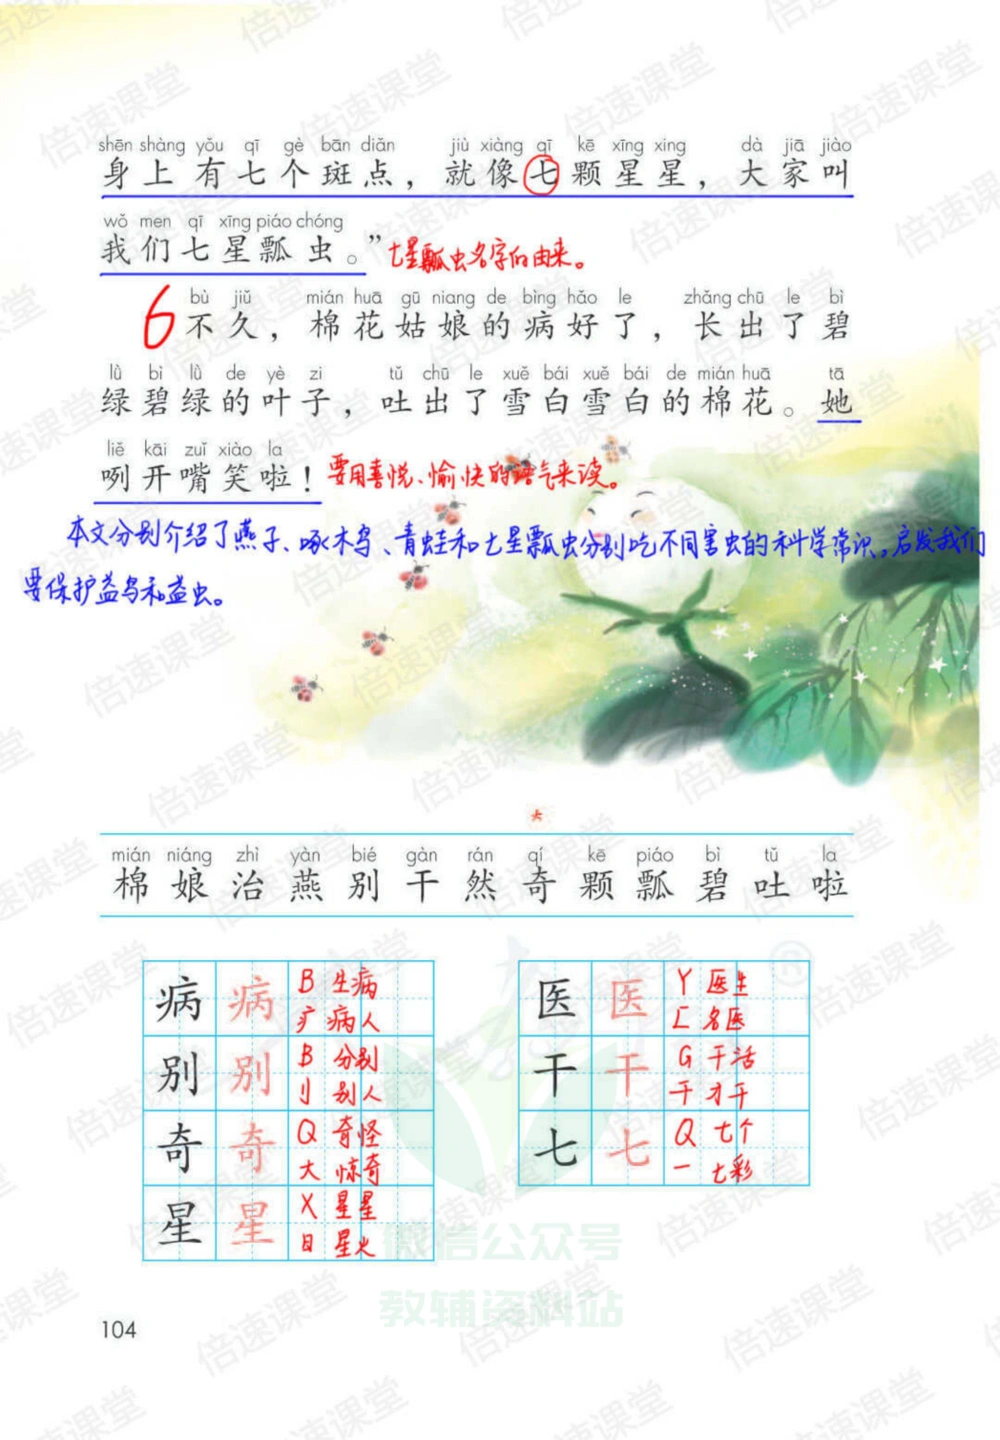 shēn shàng yǒu qī gè bān diǎn jiù xiàng qī kē xīng xing dà jiā jiào
身上有七个斑点，就像七颗星星，大家叫
wǒ men qī xīng piáo chóng
我们七星瓢虫。”七星瓢虫名字的由来。
bù jiǔ mián huā gū niang de bìng hǎo le zhǎng chū le bì
6 不久，棉花姑娘的病好了，长出了碧
lǜ bì lǜ de yè zi tǔ chū le xuě bái xuě bái de mián huā tā
绿碧绿的叶子，吐出了雪白雪白的棉花。她
liě kāi zuǐ xiào la
咧开嘴笑啦！要用喜悦、愉快的语气来读。
本文分别介绍了燕子、啄木鸟、青蛙和七星瓢虫分别吃不同害虫的科学常识。启发我们
要保护益鸟和益虫。
大
mián niáng zhì yàn bié gàn rán qí kē piáo bì tǔ la
棉娘治燕别干然奇颗瓢碧吐啦
病 病 B 生病
疒 病人
别 别 B 分别
刂 别人
奇 奇 Q 奇怪
大 惊奇
星 星 X 星星
日 星火
医 医 Y 医生
匚 名医
干 干 G 干活
干 才干
七 七 Q 七个
一 七彩
微信公众号
教辅资料站
104
倍速课堂